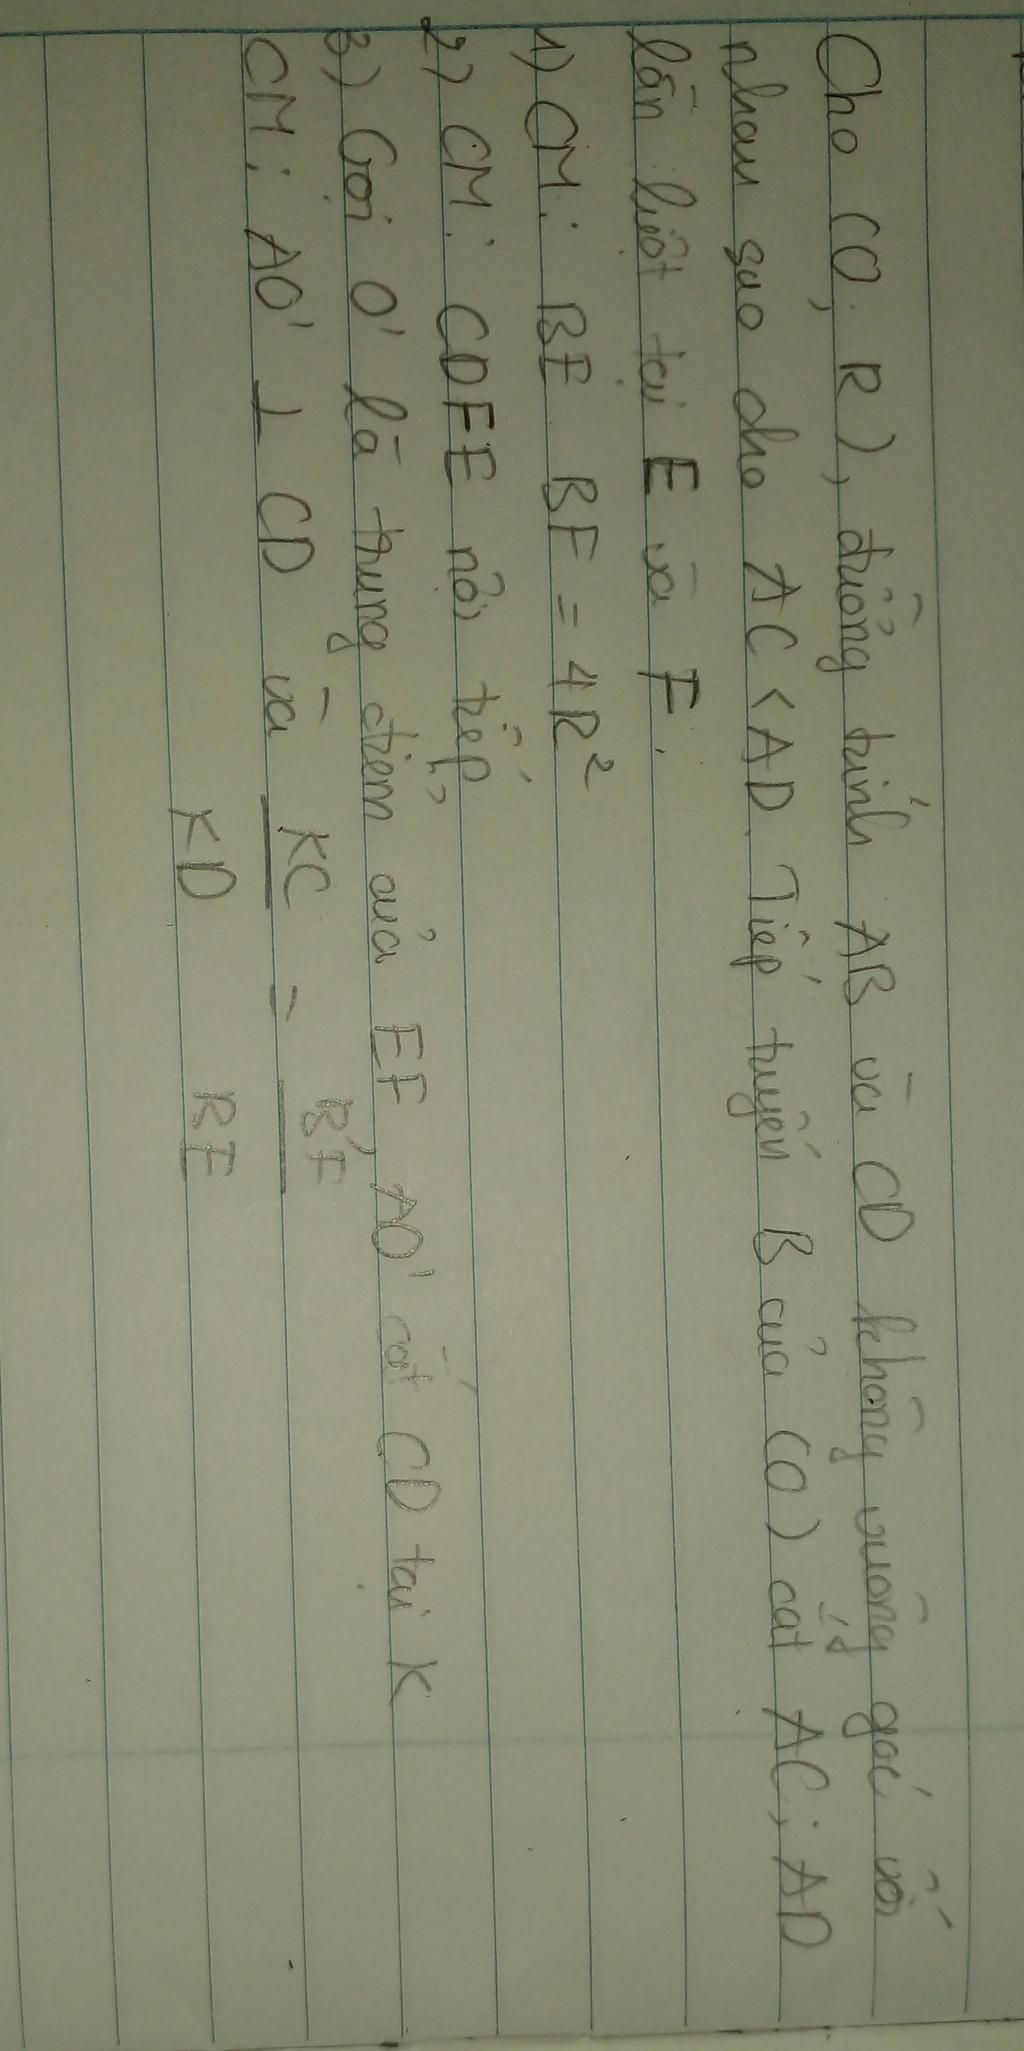 Cho (O; R), đường kính AB và CD không vuông góc với
nhau sao cho AC < AD. Tiếp tuyến B của (O) cắt AC; AD
lần lượt tại E và F.
1) CM: BE. BF = 4R²
2) CM: CDFE nội tiếp
3) Gọi O' là trung điểm của EF, AO' cắt CD tại K
CM: AO' ⊥ CD và KC/KD = BE/BF